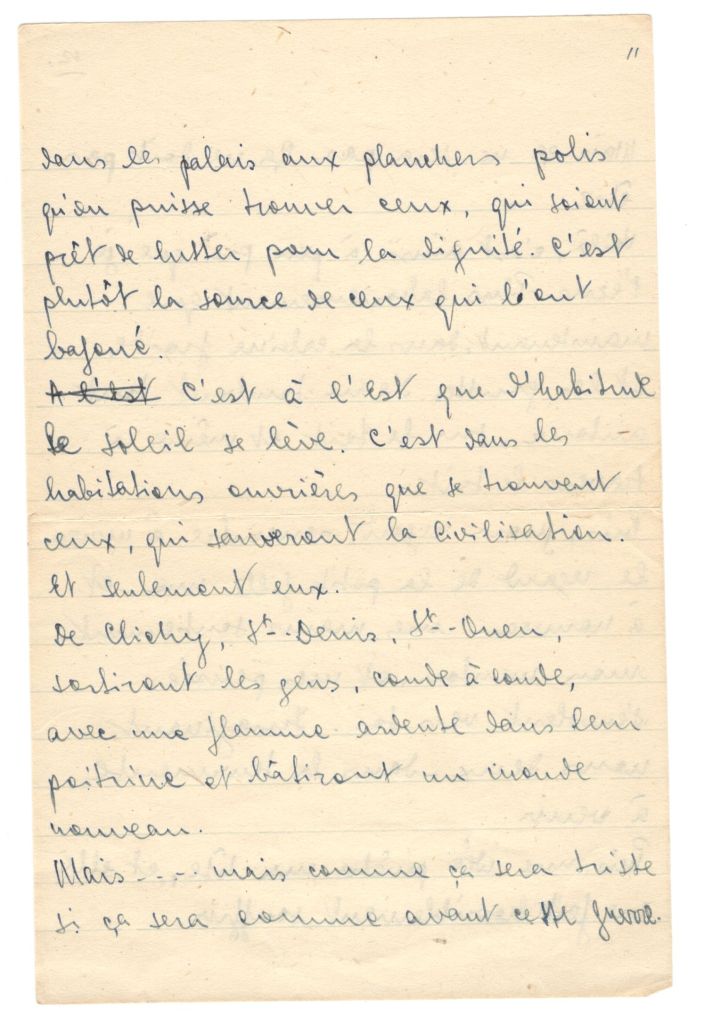 11
dans les palais aux planchers polis
qu'on puisse trouver ceux, qui soient
prêt de lutter pour la dignité. C'est
plutôt la source de ceux qui l'ont
bafoué.
A l'Est C'est à l'Est que d'habitude
le soleil se lève. C'est dans les
habitations ouvrières que se trouvent
ceux, qui sauveront la civilisation.
Et seulement eux.
De Clichy, St-Denis, St-Ouen,
sortiront les gens, coude à coude,
avec une flamme ardente dans leur
poitrine et bâtiront un monde
nouveau.
Mais .... mais comme ça sera triste
si ça sera comme avant cette guerre.